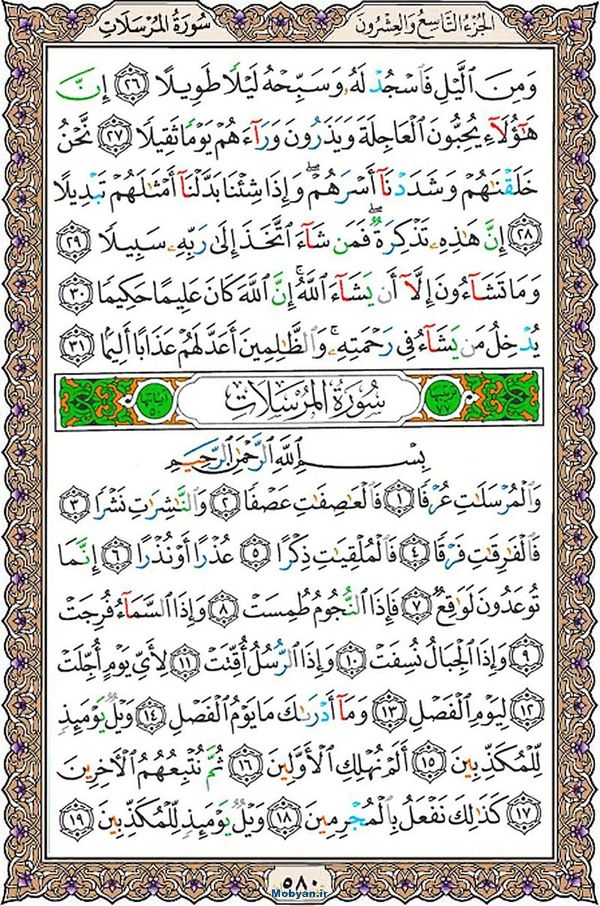 الجزء التاسع والعشرون سورة المرسلات
وَمِنَ ٱلَّيۡلِ فَٱسۡجُدۡ لَهُۥ وَسَبِّحۡهُ لَيۡلٗا طَوِيلًا ٢٦ إِنَّ
هَٰٓؤُلَآءِ يُحِبُّونَ ٱلۡعَاجِلَةَ وَيَذَرُونَ وَرَآءَهُمۡ يَوۡمٗا ثَقِيلٗا ٢٧ نَّحۡنُ
خَلَقۡنَٰهُمۡ وَشَدَدۡنَآ أَسۡرَهُمۡۖ وَإِذَا شِئۡنَا بَدَّلۡنَآ أَمۡثَٰلَهُمۡ تَبۡدِيلًا
٢٨ إِنَّ هَٰذِهِۦ تَذۡكِرَةٞۖ فَمَن شَآءَ ٱتَّخَذَ إِلَىٰ رَبِّهِۦ سَبِيلٗا ٢٩
وَمَا تَشَآءُونَ إِلَّآ أَن يَشَآءَ ٱللَّهُۚ إِنَّ ٱللَّهَ كَانَ عَلِيمًا حَكِيمٗا ٣٠
يُدۡخِلُ مَن يَشَآءُ فِي رَحۡمَتِهِۦۚ وَٱلظَّٰلِمِينَ أَعَدَّ لَهُمۡ عَذَابًا أَلِيمَۢا ٣١
ترتيبها ٧٧ سُورَةُ المُرۡسَلَاتِ آياتها ٥٠
بِسۡمِ ٱللَّهِ ٱلرَّحۡمَٰنِ ٱلرَّحِيمِ
وَٱلۡمُرۡسَلَٰتِ عُرۡفٗا ١ فَٱلۡعَٰصِفَٰتِ عَصۡفٗا ٢ وَٱلنَّٰشِرَٰتِ نَشۡرٗا ٣
فَٱلۡفَٰرِقَٰتِ فَرۡقٗا ٤ فَٱلۡمُلۡقِيَٰتِ ذِكۡرًا ٥ عُذۡرًا أَوۡ نُذۡرًا ٦ إِنَّمَا
تُوعَدُونَ لَوَٰقِعٞ ٧ فَإِذَا ٱلنُّجُومُ طُمِسَتۡ ٨ وَإِذَا ٱلسَّمَآءُ فُرِجَتۡ
٩ وَإِذَا ٱلۡجِبَالُ نُسِفَتۡ ١٠ وَإِذَا ٱلرُّسُلُ أُقِّتَتۡ ١١ لِأَيِّ يَوۡمٍ أُجِّلَتۡ
١٢ لِيَوۡمِ ٱلۡفَصۡلِ ١٣ وَمَآ أَدۡرَىٰكَ مَا يَوۡمُ ٱلۡفَصۡلِ ١٤ وَيۡلٞ يَوۡمَئِذٖ
لِّلۡمُكَذِّبِينَ ١٥ أَلَمۡ نُهۡلِكِ ٱلۡأَوَّلِينَ ١٦ ثُمَّ نُتۡبِعُهُمُ ٱلۡأٓخِرِينَ
١٧ كَذَٰلِكَ نَفۡعَلُ بِٱلۡمُجۡرِمِينَ ١٨ وَيۡلٞ يَوۡمَئِذٖ لِّلۡمُكَذِّبِينَ ١٩
٥٨٠
Mobyan.ir